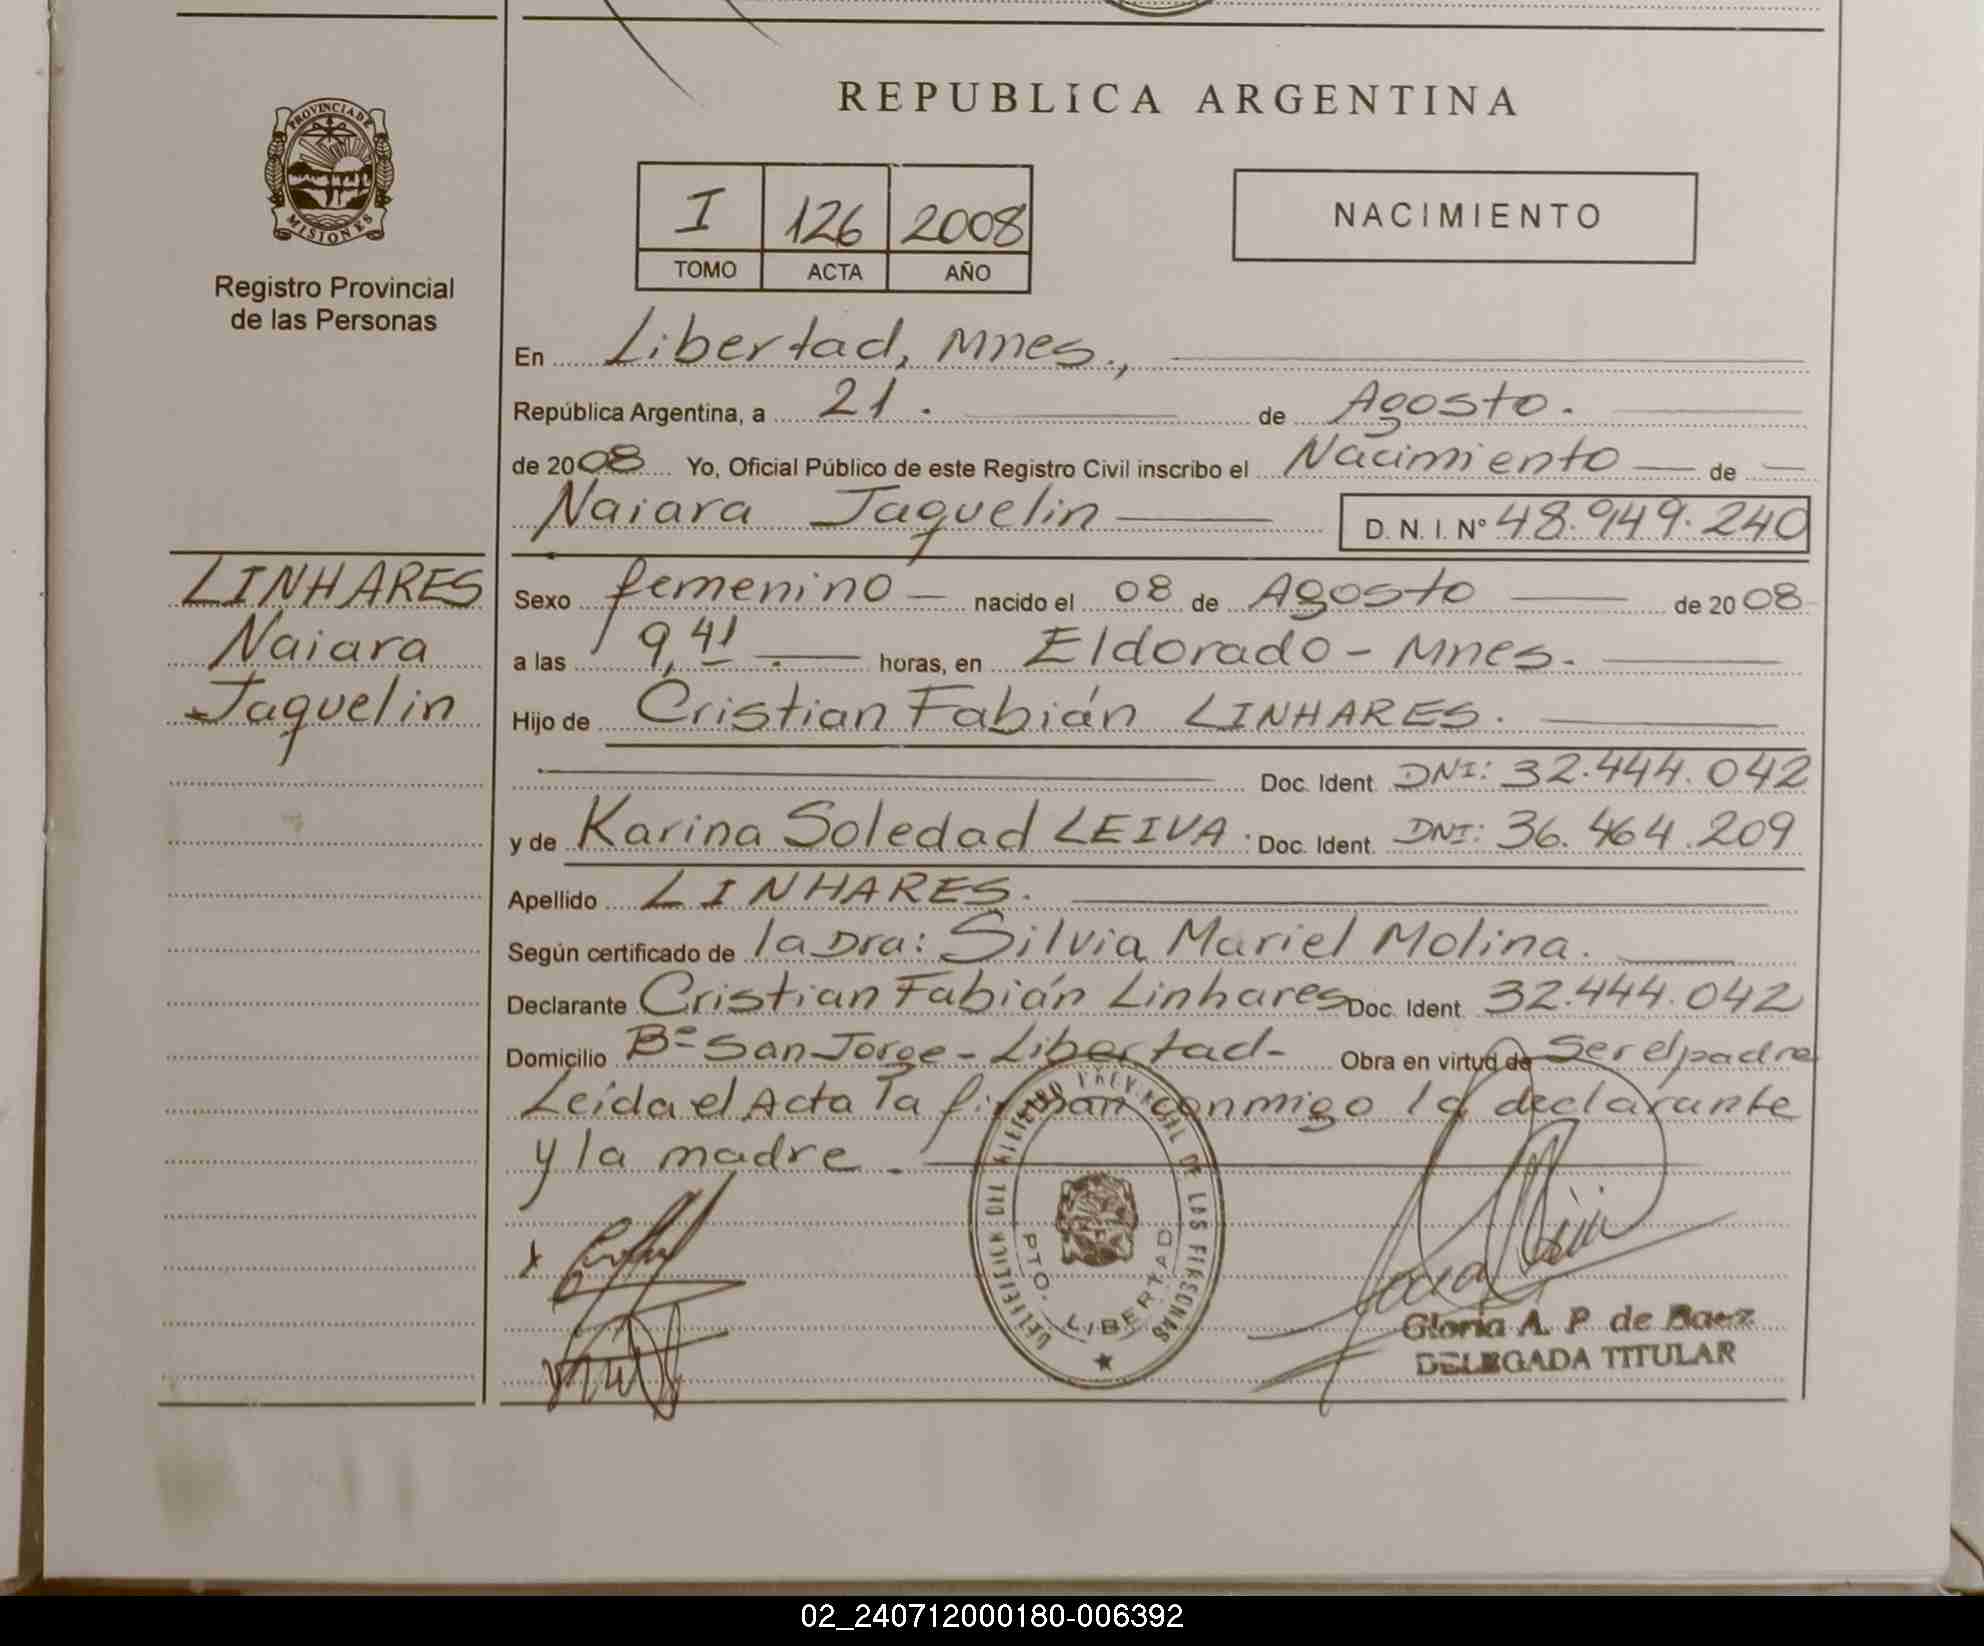 REPUBLICA ARGENTINA
PROVINCIA DE
MISIONES
Registro Provincial
de las Personas
I 126 2008
TOMO ACTA AÑO
NACIMIENTO
En Libertad, Mnes.,
República Argentina, a 21. de Agosto.
de 2008 Yo, Oficial Público de este Registro Civil inscribo el Nacimiento de
Naiara Jaquelin D. N. I. Nº 48.949.240
LINHARES
Naiara
Jaquelin
Sexo femenino nacido el 08 de Agosto de 2008
a las 9,41 horas, en Eldorado - Mnes.
Hijo de Cristian Fabián LINHARES.
Doc. Ident. DNI: 32.444.042
y de Karina Soledad LEIVA. Doc. Ident. DNI: 36.464.209
Apellido LINHARES.
Según certificado de la Dra: Silvia Mariel Molina.
Declarante Cristian Fabián Linhares Doc. Ident. 32.444.042
Domicilio Bº San Jorge - Libertad - Obra en virtud de Ser el padre
Leída el Acta la firman conmigo la declarante
y la madre.
DE LAS PERSONAS
PTO. LIBERTAD
Gloria A. P. de Baez
DELEGADA TITULAR
02_240712000180-006392